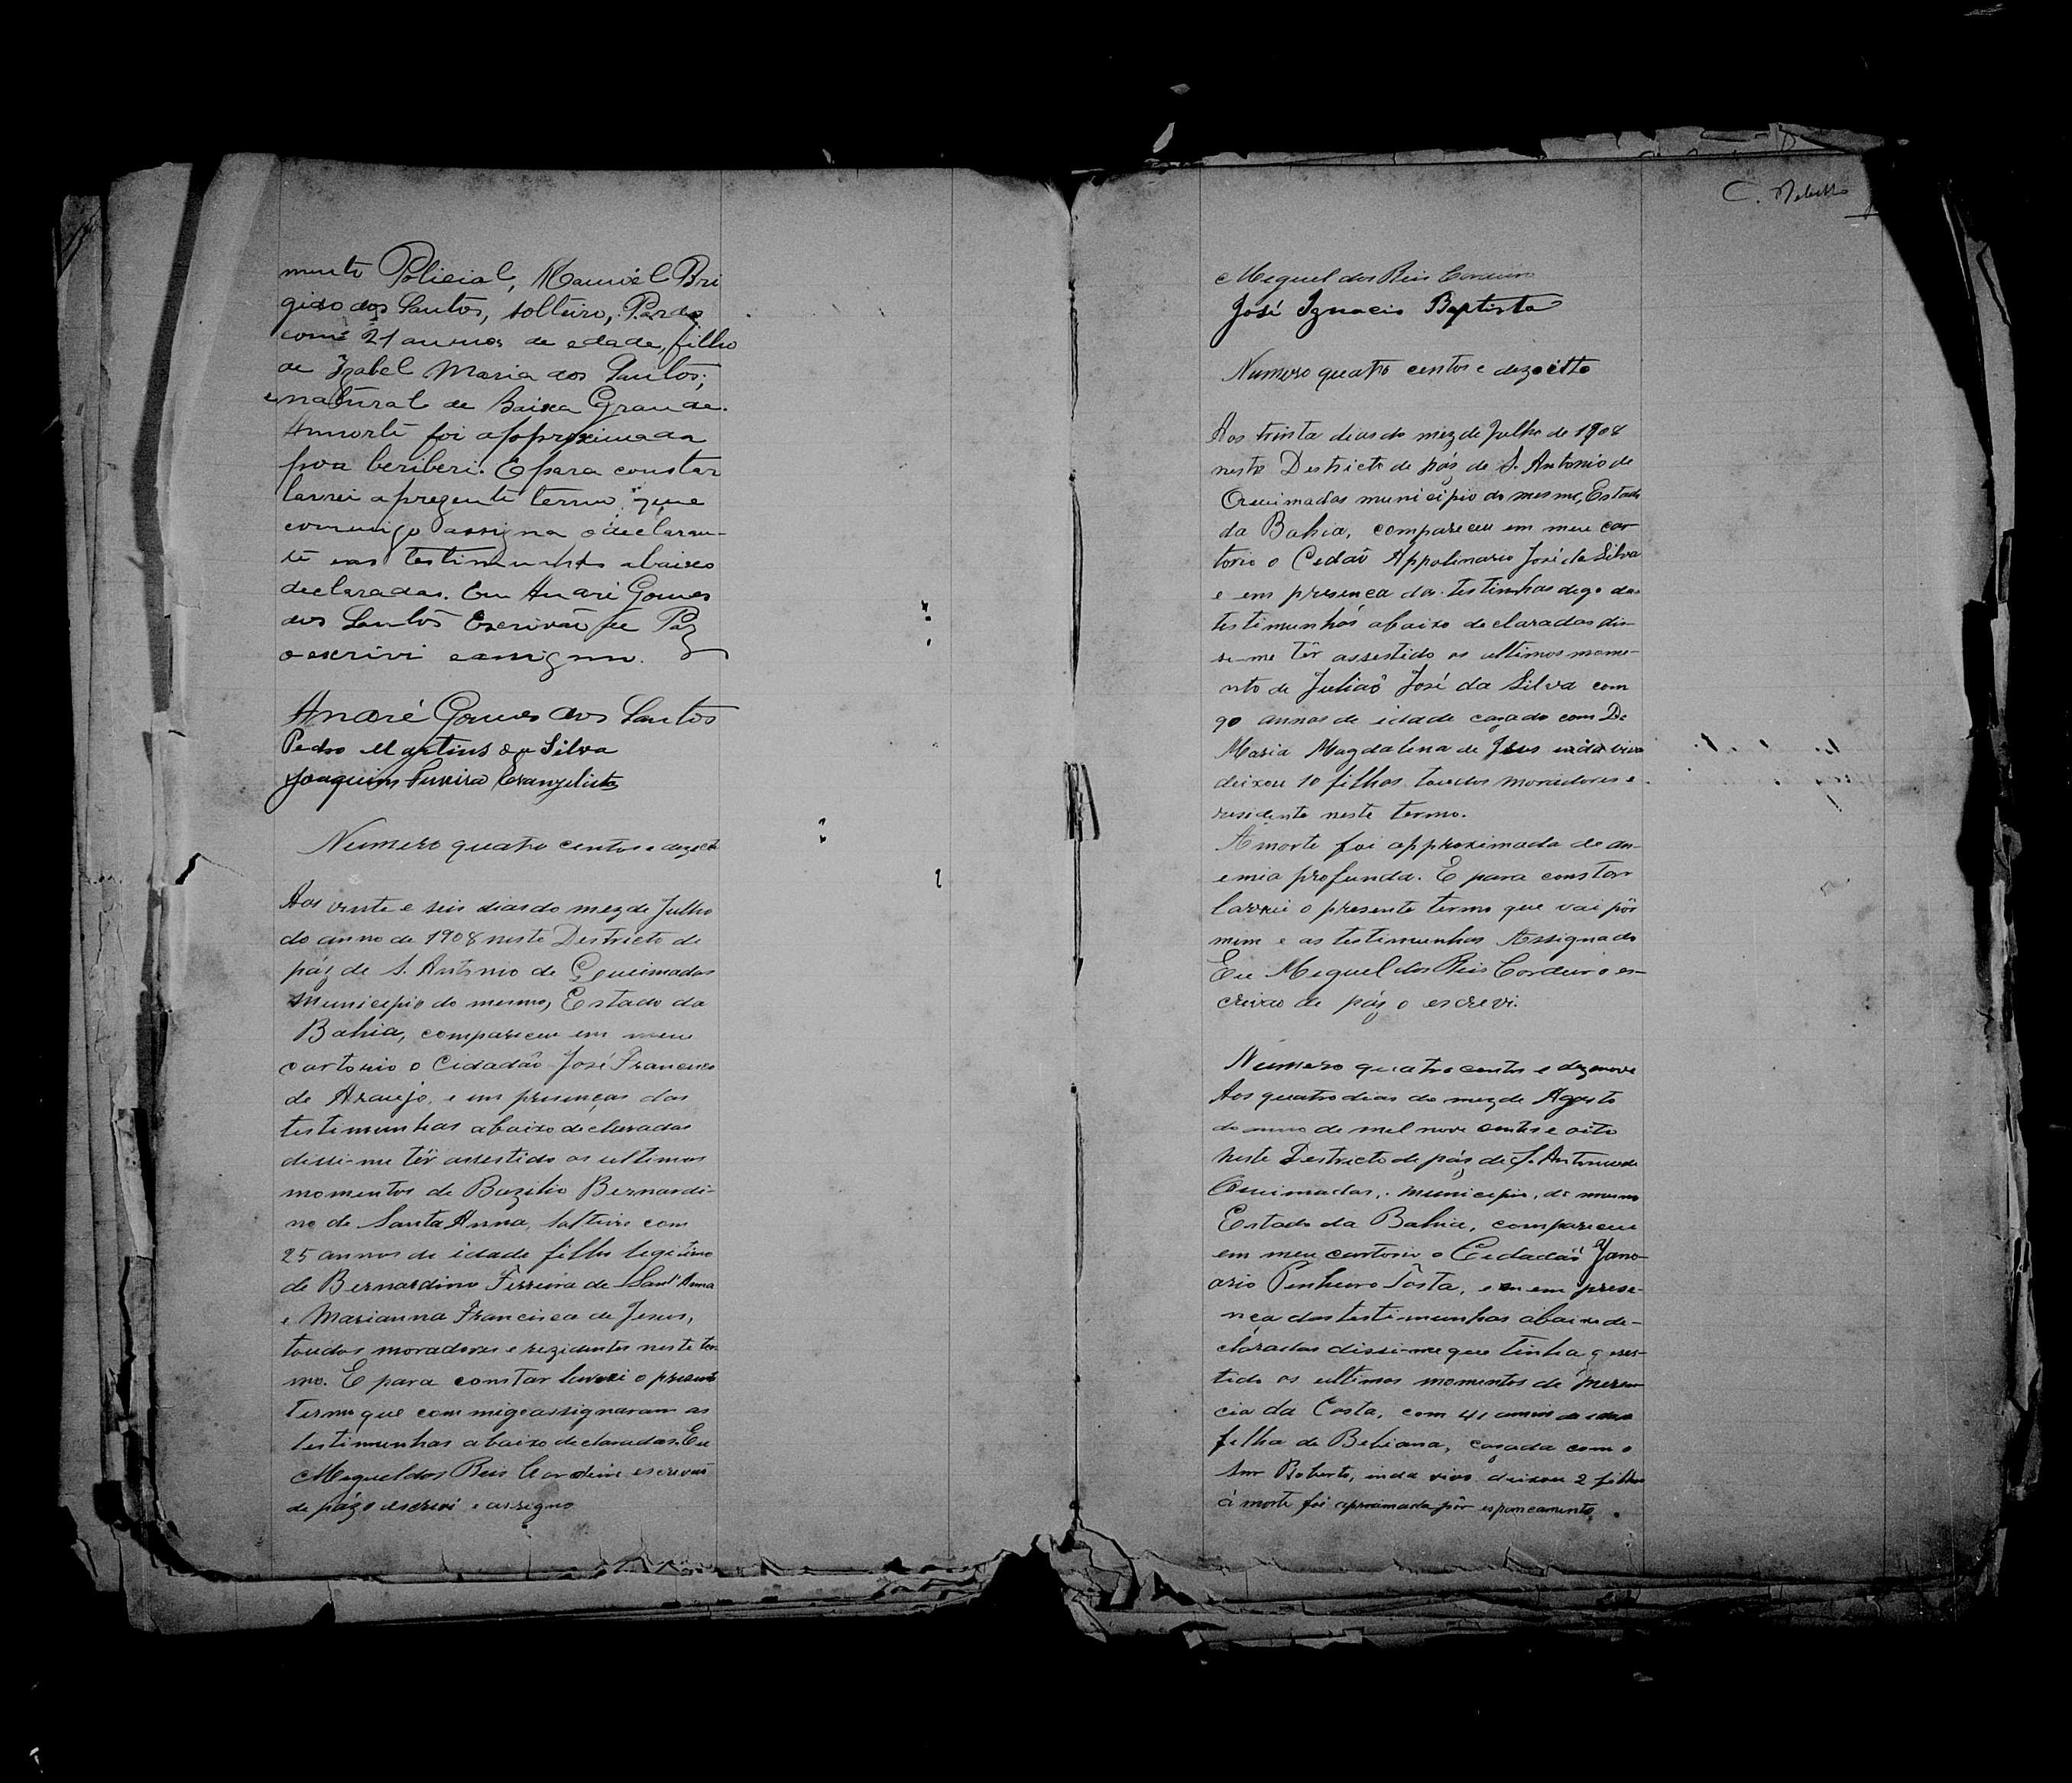 mento Policial, Manoel Bri
gido dos Santos, solteiro, Pardo
com 21 annos de edade, filho
de Izabel Maria dos Santos;
e natural de Baixa Grande.
A morte foi approximada
por beriberi. E para constar
lavrei a prezente termo que
commigo assigna o declaran-
te e as testimunhas abaixo
declaradas. Eu André Gomes
dos Santos Escrivão de Paz
o escrivi e assigno.
André Gomes dos Santos
Pedro Martins da Silva
Joaquim Pereira Evangelista
Numero quatro centos e dezecete
Aos vinte e seis dias do mez de Julho
do anno de 1908 neste Destricto de
páz de S. Antonio de Queimadas
Municipio do mesmo, Estado da
Bahia, compareceu em meu
cartorio o Cidadão José Francisco
de Araujo, e em presenças das
testimunhas abaixo declaradas
disse-me têr assestido os ultimos
momentos de Bazilio Bernardi-
no de Santa Anna, solteiro com
25 annos de idade filho legitimo
de Bernardino Ferreira de Sant'Anna
e Marianna Francisca de Jesus,
toudos moradores e rezidentes neste ter-
mo. E para constar lavrei o presente
termo que com migo assignaram as
testimunhas abaixo declaradas. Eu
Meguel dos Reis Cordeiro escrivão
de páz o escrevi e assigno
C.
Meguel dos Reis Cordeiro
José Ignacio Baptista
Numero quatro centos e dezoitto
Aos trinta dias do mez de Julho de 1908
neste Destricto de páz de S. Antonio de
Queimadas municipio do mesmo, Estado
da Bahia, compareceu em meu car
torio o Cedaõ Appolinario José da Silva
e em presença das testinhas dego das
testimunhas abaixo declaradas dis-
se-me têr assestido os ultimos mome-
nto de Juliaõ José da Silva com
90 annos de idade cazado com D.
Maria Magdalena de Jesus inda viva
deixou 10 filhos toudos moradores e
residente neste termo.
A morte foi approximada de an-
emia profunda. E para constar
lavrei o presente termo que vai pôr
mim e as testimunhas Assignado
Eu Meguel dos Reis Cordeiro es-
crivao de páz o escrevi.
Numero quatro centos e dezenove
Aos quatro dias do mez de Agosto
do anno de mel nove centos e oito
neste Destricto de páz de S. Antonio de
Queimadas, municipio, do mesmo
Estado da Bahia, compareceu
em meu cartorio o Cedadaõ Jano-
ario Penheiro Tosta, e em prese-
nça das testimunhas abaixo de-
claradas disse-me que tinha asses-
tido os ultimos momentos de
cia da Costa, com 41 annos de idade
filha de Bebiana, cazada com o
Snr Roberto, inda vivo deixou 2 filhos
á morte foi apromada pôr espancamento.